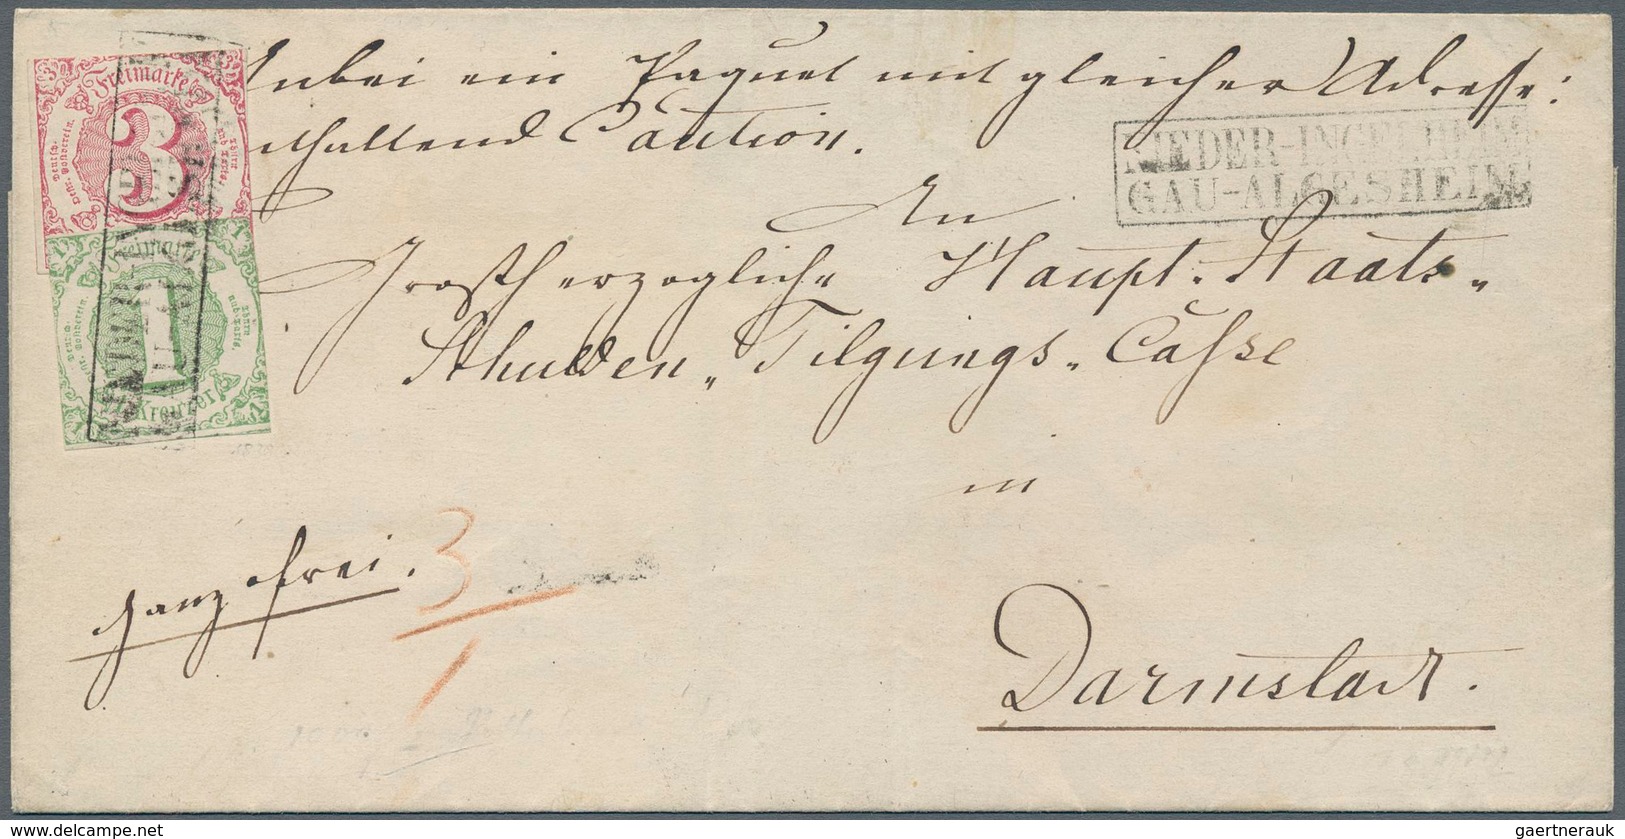 Anbei ein Paquet mit gleicher Adresse:
enthaltend Caution.
NIEDER-INGELHEIM
GAU-ALGESHEIM
An
Grosherzogliche Haupt-Staats-
Schulden-Tilgungs-Casse
in
Darmstadt.
ganz frei.
3
1
Freimarke
3
Freimarke
1
Kreuzer
gaertnerauk